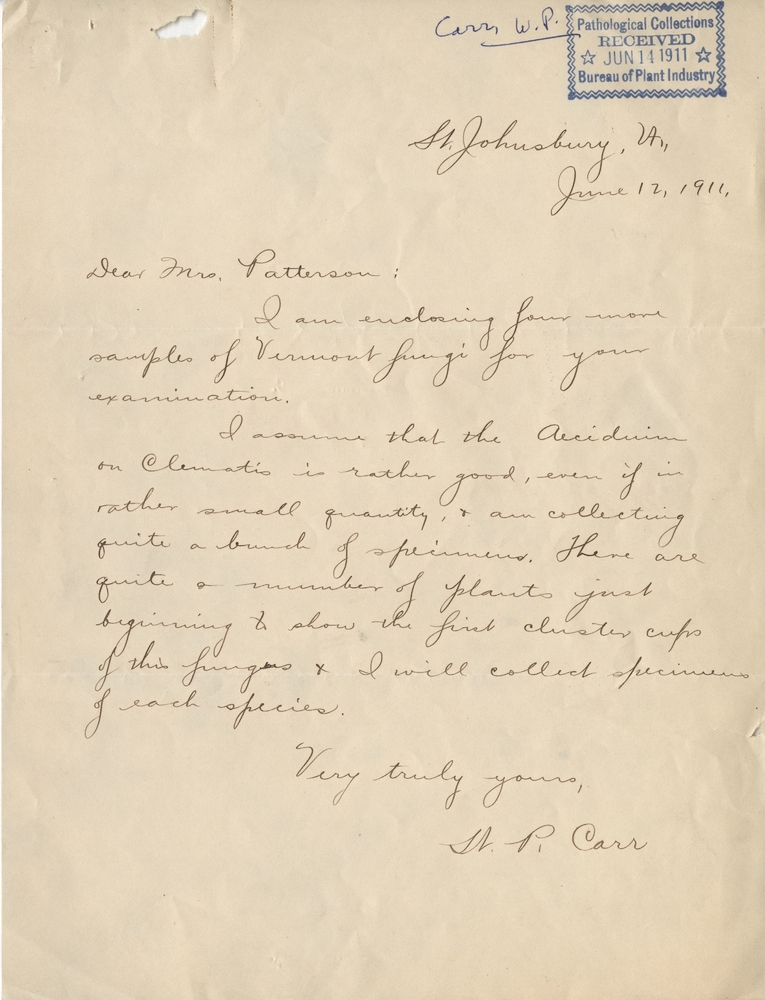 Carr, W. P.
Pathological Collections
RECEIVED
☆ JUN 14 1911 ☆
Bureau of Plant Industry
St. Johnsbury, Vt.,
June 12, 1911.
Dear Mrs. Patterson:
I am enclosing four more
samples of Vermont fungi for your
examination.
I assume that the Aecidium
on Clematis is rather good, even if in
rather small quantity, & am collecting
quite a bunch of specimens. There are
quite a number of plants just
beginning to show the first cluster cups
of this fungus & I will collect specimens
of each species.
Very truly yours,
W. P. Carr